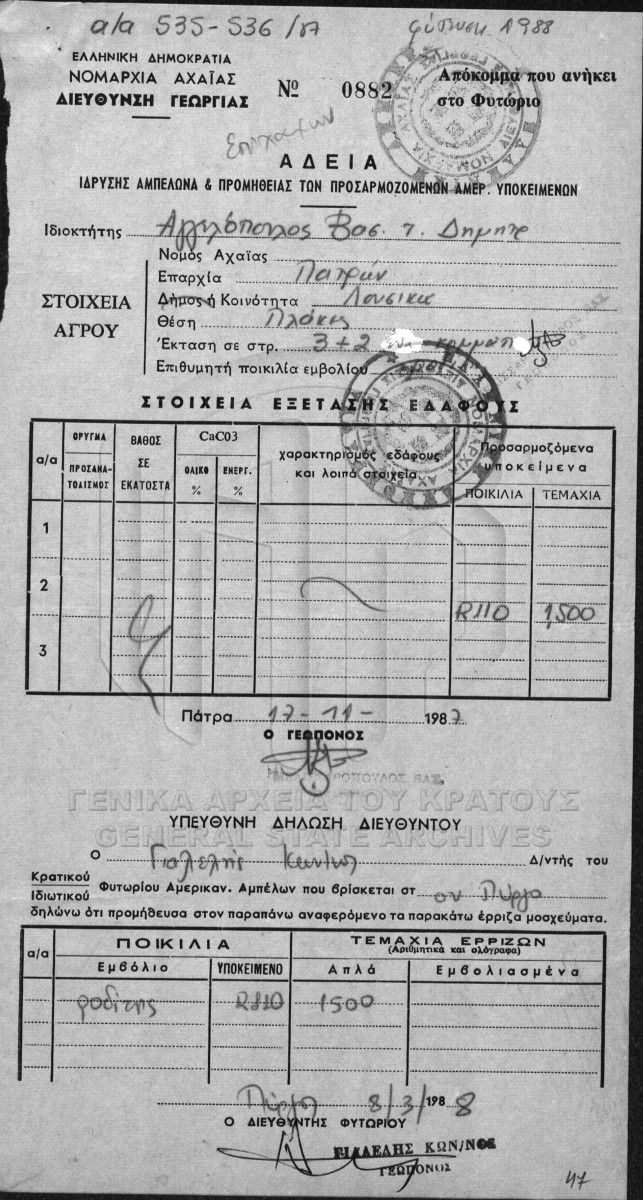 α/α 535-536/87 φύτευση 1988
ΕΛΛΗΝΙΚΗ ΔΗΜΟΚΡΑΤΙΑ
ΝΟΜΑΡΧΙΑ ΑΧΑΪΑΣ
ΔΙΕΥΘΥΝΣΗ ΓΕΩΡΓΙΑΣ
Νο 0882
Απόκομμα που ανήκει
στο Φυτώριο
ΑΔΕΙΑ
ΙΔΡΥΣΗΣ ΑΜΠΕΛΩΝΑ & ΠΡΟΜΗΘΕΙΑΣ ΤΩΝ ΠΡΟΣΑΡΜΟΖΟΜΕΝΩΝ ΑΜΕΡ. ΥΠΟΚΕΙΜΕΝΩΝ
Ιδιοκτήτης Αγγελόπουλος Βασ. τ. Δημητρ
ΣΤΟΙΧΕΙΑ
ΑΓΡΟΥ
Νομός Αχαΐας
Επαρχία Πατρών
Δήμος ή Κοινότητα Λουσικα
Θέση Πλάκες
Έκταση σε στρ. 3+2
Επιθυμητή ποικιλία εμβολίου
ΣΤΟΙΧΕΙΑ ΕΞΕΤΑΣΗΣ ΕΔΑΦΟΥΣ
α/α
ΟΡΥΓΜΑ
ΠΡΟΣΑΝΑ-
ΤΟΛΙΣΜΟΣ
ΒΑΘΟΣ
ΣΕ
ΕΚΑΤΟΣΤΑ
CaCO3
ΟΛΙΚΟ
%
ΕΝΕΡΓ.
%
χαρακτηρισμός εδάφους
και λοιπά στοιχεία
Προσαρμοζόμενα
υποκείμενα
ΠΟΙΚΙΛΙΑ ΤΕΜΑΧΙΑ
1
2
R110 1,500
3
Πάτρα 17-11- 1987
Ο ΓΕΩΠΟΝΟΣ
ΓΕΝΙΚΑ ΑΡΧΕΙΑ ΤΟΥ ΚΡΑΤΟΥΣ
GENERAL STATE ARCHIVES
ΥΠΕΥΘΥΝΗ ΔΗΛΩΣΗ ΔΙΕΥΘΥΝΤΟΥ
Ο Γιαλελής Κων/νος Δ/ντής του
Κρατικού
Ιδιωτικού
Φυτωρίου Αμερικαν. Αμπέλων που βρίσκεται στ ον Πύργο
δηλώνω ότι προμήθευσα στον παραπάνω αναφερόμενο τα παρακάτω έρριζα μοσχεύματα.
α/α
ΠΟΙΚΙΛΙΑ
ΤΕΜΑΧΙΑ ΕΡΡΙΖΩΝ
(Αριθμητικά και ολόγραφα)
Εμβόλιο ΥΠΟΚΕΙΜΕΝΟ Απλά Εμβολιασμένα
ροδίτης R110 1500
Πύργο 8/3/1988
Ο ΔΙΕΥΘΥΝΤΗΣ ΦΥΤΩΡΙΟΥ
ΓΙΑΛΕΛΗΣ ΚΩΝ/ΝΟΣ
ΓΕΩΠΟΝΟΣ
47